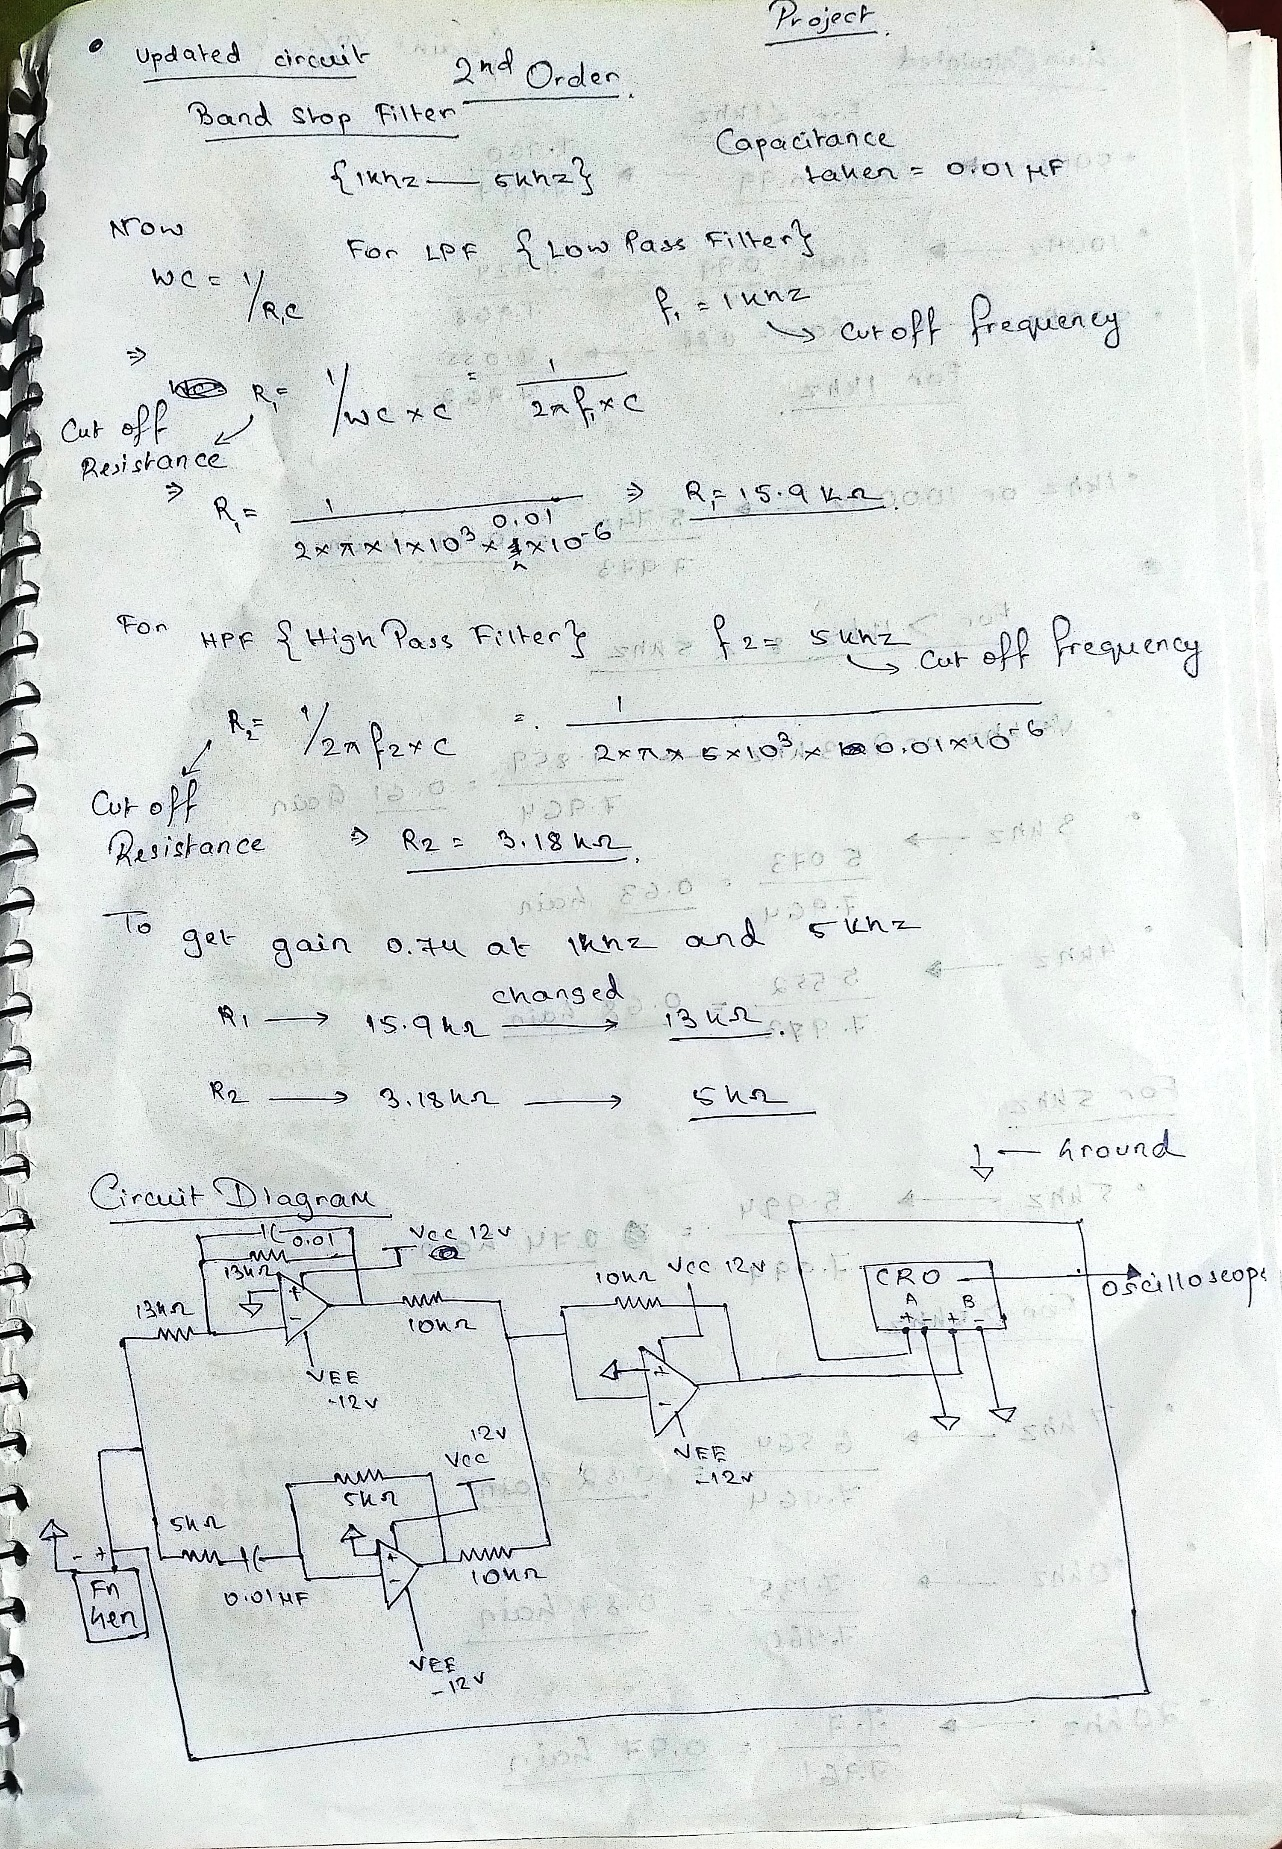 Project.
• Updated circuit 2nd Order.
Band Stop Filter
{1khz — 5khz}
Capacitance
taken = 0.01 μF
Now
For LPF {Low Pass Filter}
WC = 1/R₁C
f₁ = 1khz
→ Cut off frequency
⇒ R₁ = 1/WC × C = 1/2π f₁ × C
Cut off
Resistance
⇒ R₁ = 1/2×π×1×10³×0.01×10-6 ⇒ R₁ = 15.9 kΩ.
For HPF {High Pass Filter} f2 = 5khz
→ Cut off frequency
R₂ = 1/2π f2×C = 1/2×π×5×10³×0.01×10-6
Cut off
Resistance ⇒ R2 = 3.18 kΩ.
To get gain 0.74 at 1khz and 5khz
changed
R1 → 15.9kΩ → 13kΩ.
R2 → 3.18kΩ → 5kΩ
← Ground
Circuit Diagram
0.01
Vcc 12v
13kΩ
+
-
13kΩ
10kΩ
VEE
-12v
10kΩ
Vcc 12v
+
-
VEE
-12v
CRO
A B
+ - + -
Oscilloscope
12v
Vcc
5kΩ
5kΩ
+
-
10kΩ
0.01μF
- +
Fn
Gen
VEE
-12v